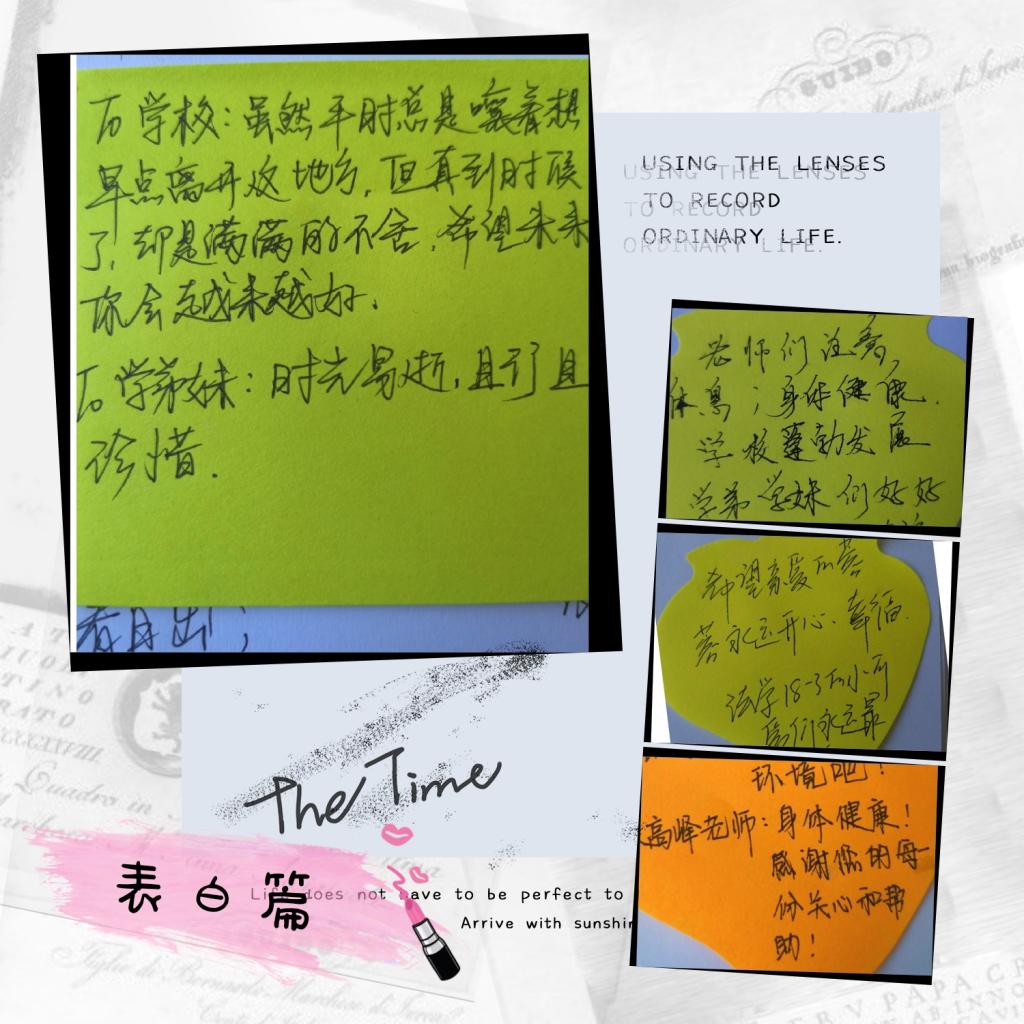 To 学校：虽然平时总是嚷着想
早点离开这地方，但真到时候
了，却是满满的不舍，希望未来
你会越来越好。
To 学弟妹：时光易逝，且行且
珍惜．
USING THE LENSES
TO RECORD
ORDINARY LIFE.
老师们注意，
休息；身体健康．
学校蓬勃发展
学弟学妹们好好
希望亲爱的蓉
蓉永远开心、幸福．
法学18-3的小可
爱们永远最
环境吧！
高峰老师：身体健康！
感谢您的每一
份关心和帮
助！
The Time
表白篇
Life does not have to be perfect to
Arrive with sunshin
GUIDO